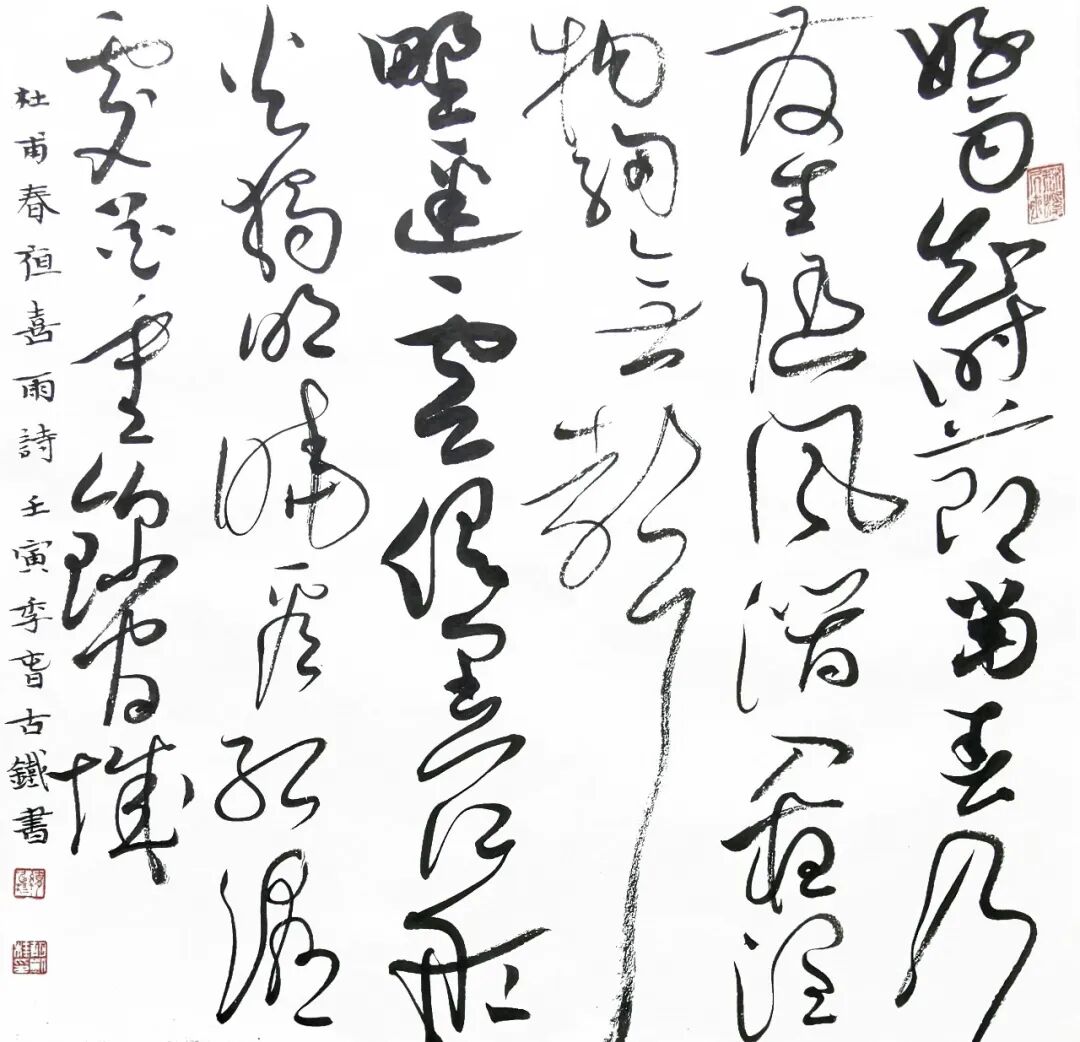 好雨知時節當春乃
發生隨風潛入夜潤
物細無聲
野徑雲俱黑江船
火獨明曉看紅濕
處花重錦官城
杜甫春亱喜雨詩 壬寅季旾古鐵書